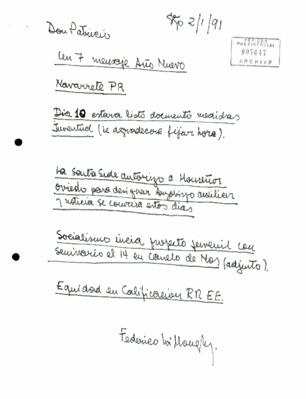 Stgo 2/1/91
Don Patricio
ARCHIVO
Lun 7 mensaje Año Nuevo
Navarrete PR
Dia 10 estara listo documento medidas
Juventud (le agradeceré fijar hora).
La Santa Sede autorizo a Monseñor
Oviedo para designar Arzobispo auxiliar
y noticia se conocera estos dias
Socialismo inicia proyecto juvenil con
seminario el 14 en Canelo de Nos (adjunto).
Equidad en Calificacion RR EE.
Federico Willoughby